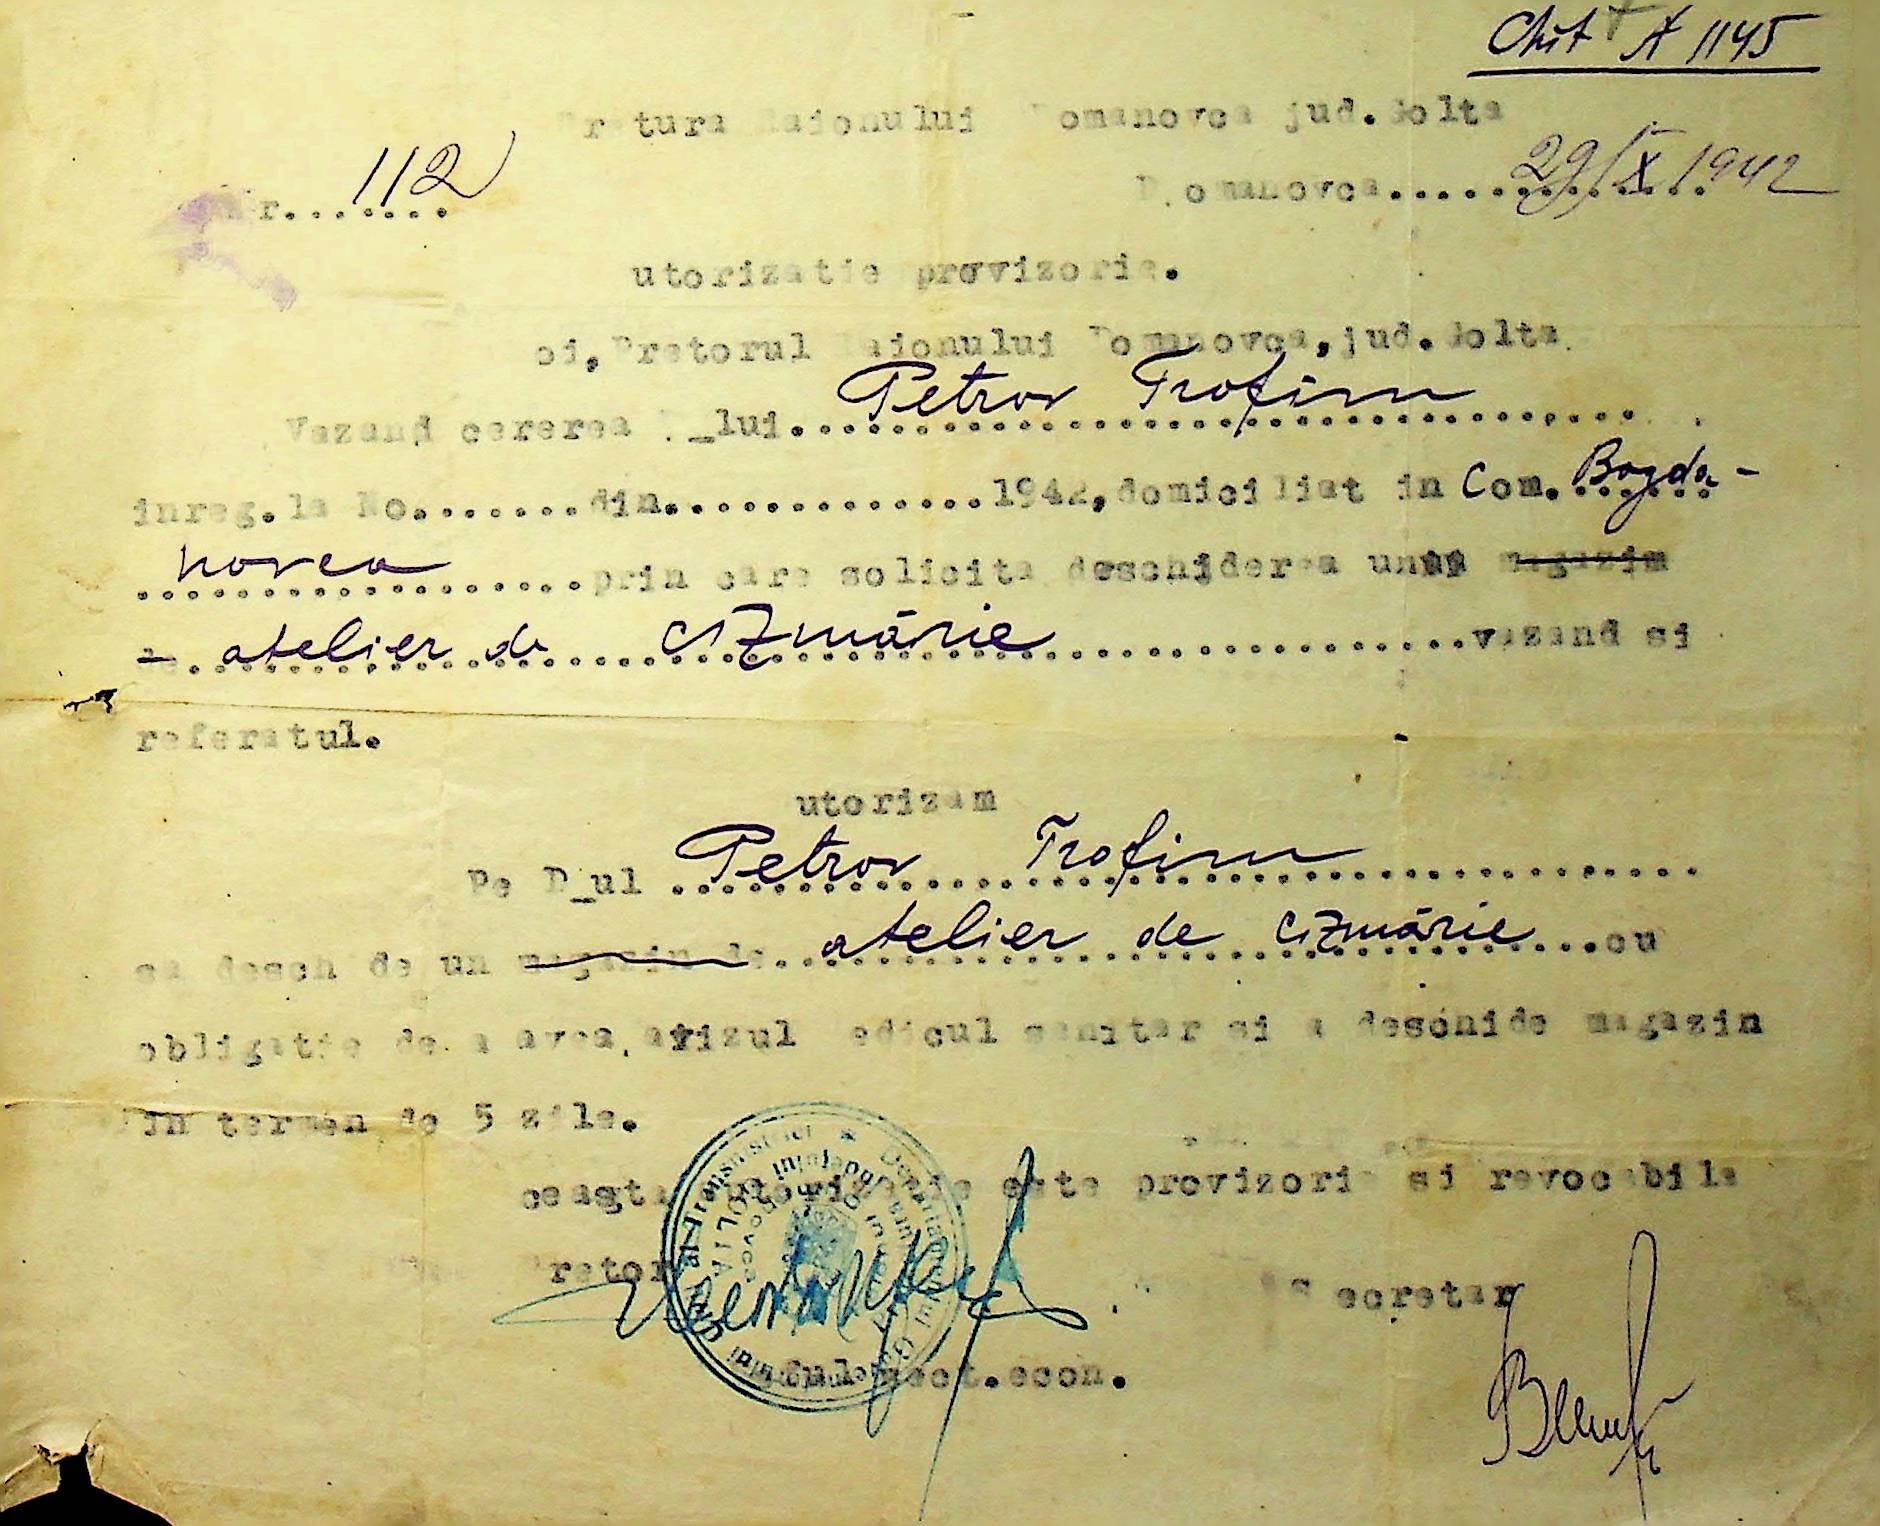 Chit A 1145
Pretura Raionului Domanovca jud. Golta
Nr....... 112 Domanovca............... 29/X 1942
utorizatie provizorie.
oi, Pretorul Raionului Domanovca, jud. Golta.
Vazand cererea D_lui. Petrov Trofim
inreg. la No........din..............1942, domiciliat in Com. Bogda-
novca ..........prin care solicita deschiderea unui magazin
de. atelier de cizmărie ..........vazand si
referatul.
utorizam
Pe D_ul Petrov Trofim
sa desch de un magazin de.. atelier de cizmărie ...cu
obligatie de a avea avizul edicul sanitar si a deschide magazin
in termen de 5 zile.
ceasta autorizatie este provizorie si revocabila
Pretor Secretar
sect. econ.